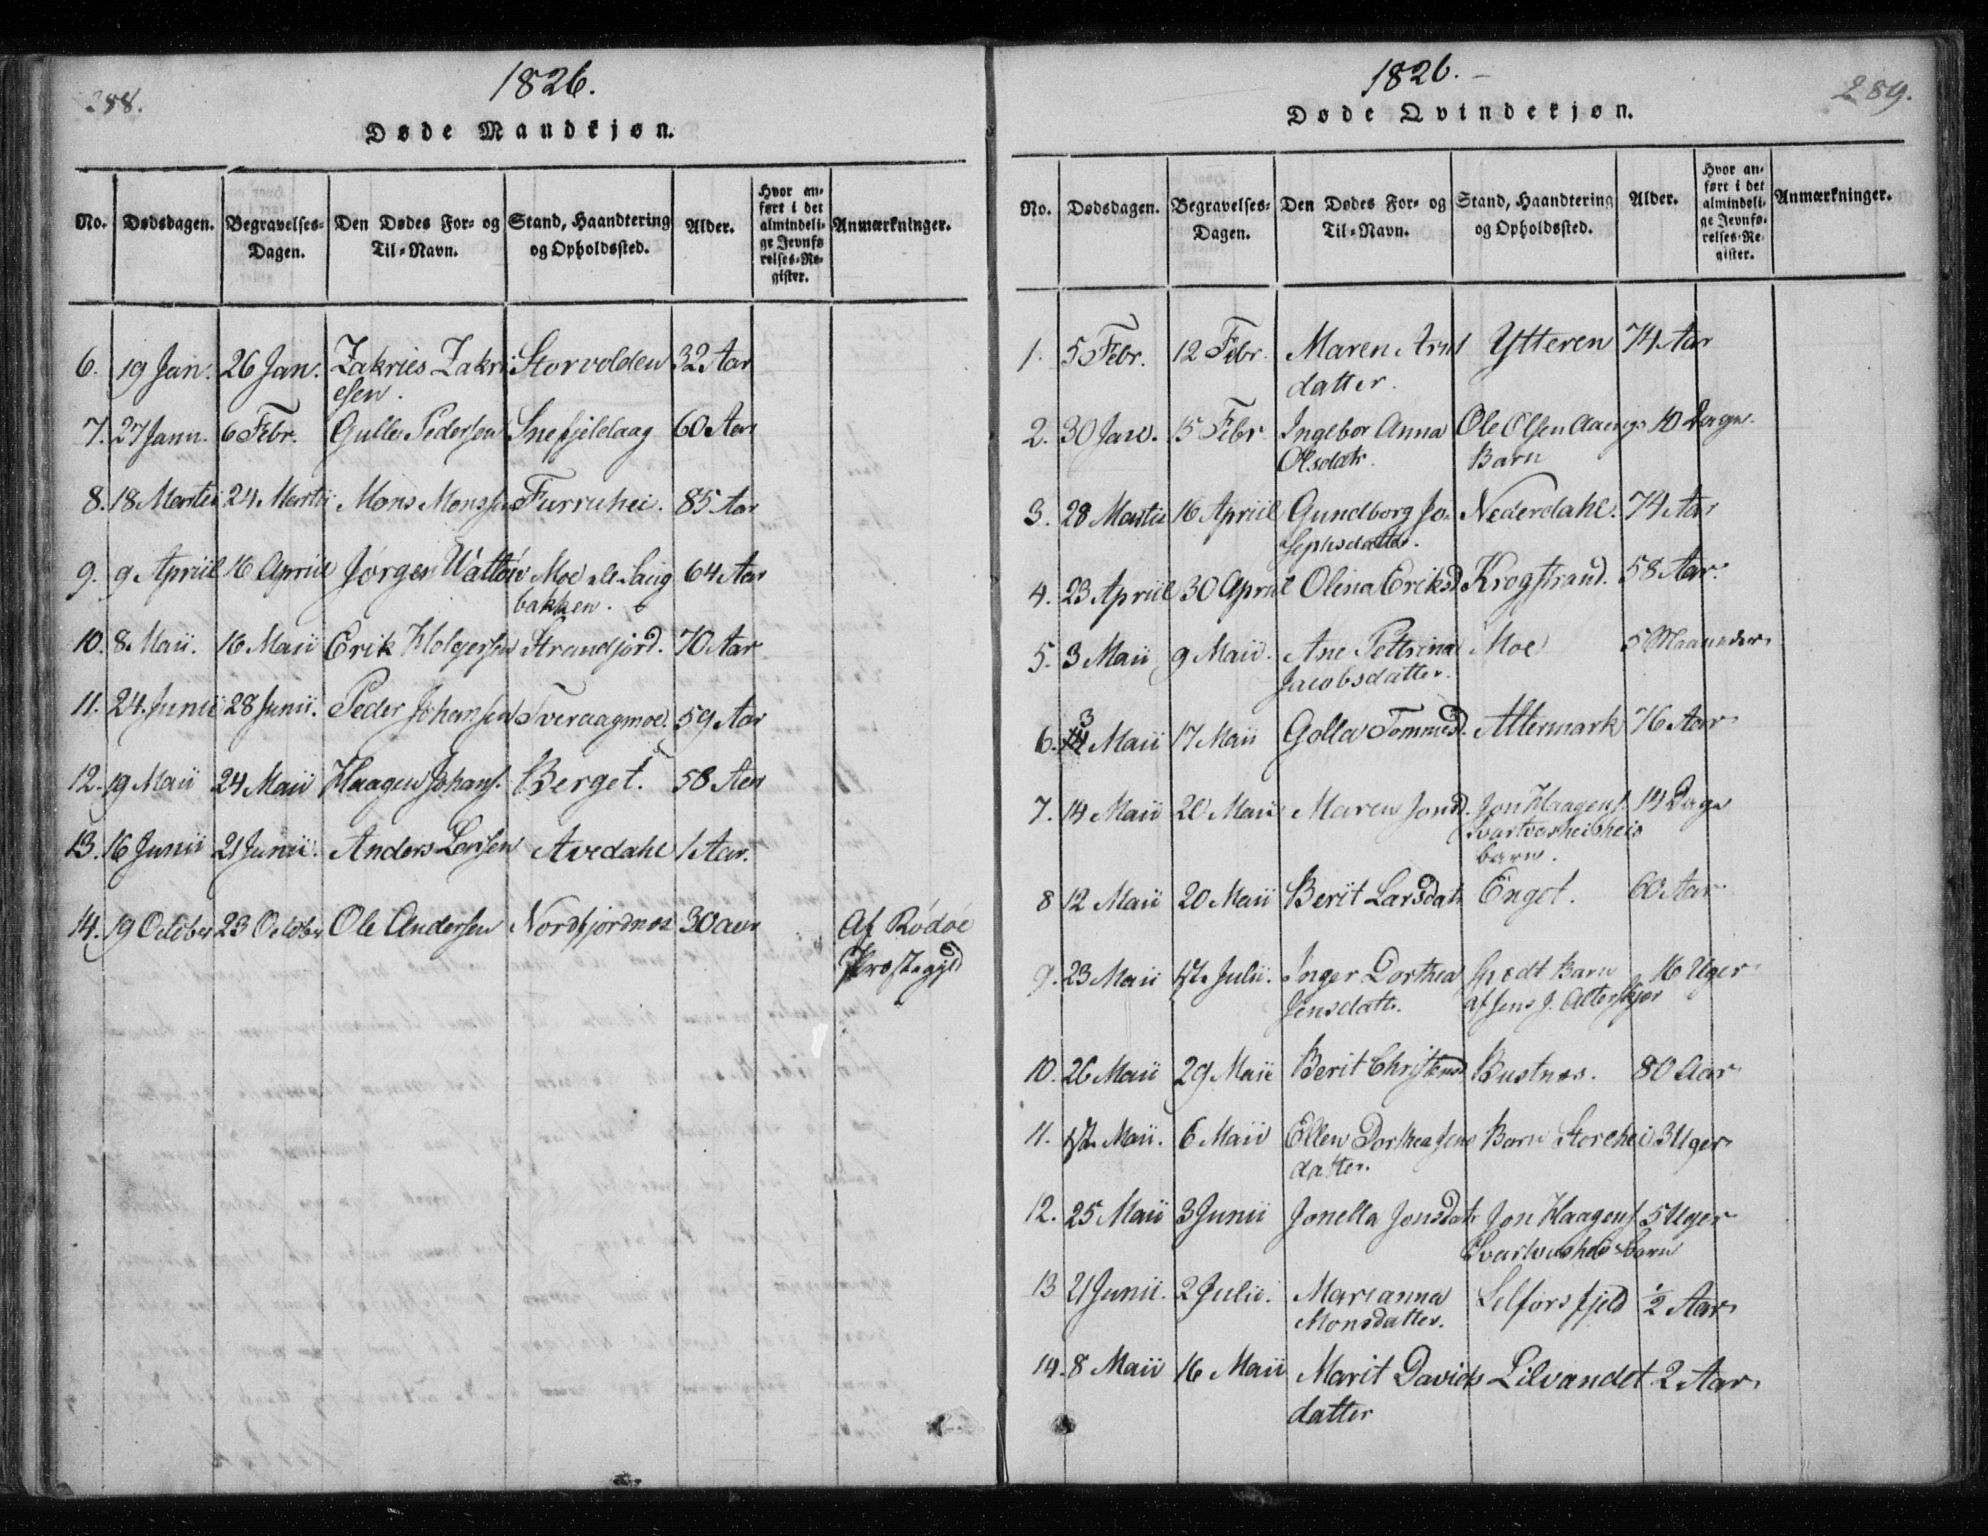 288.
1826.
Døde Mandkjøn.
No. Dødsdagen. Begravelses-Dagen. Den Dødes For- og Til-Navn. Stand, Haandtering og Opholdssted. Alder. Hvor anført i det almindelige Jevnførelses-Register. Anmærkninger.
6. 19 Jan. 26 Jan. Zakries Zakri Storvolden 32 Aar
esen.
7. 27 Janu. 6 Febr. Gulle Pedersen Snefjeldaag 60 Aar
8. 18 Martii 24 Martii Mons Monssen Furruhei. 85 Aar
9. 9 Apriil 16 Apriil Jörgen Moe 64 Aar
bakken.
10. 8. Maii. 16 Maii Erik Holgersen Strandjord. 70 Aar
11. 24. Junii 28 Junii. Peder Johansen Tveraagmoe. 59 Aar
12. 19 Maii 24 Maii Haagen Johans. Berget. 58 Aar
13. 16 Junii 21 Junii. Anders Larsen Avedahl 1 Aar.
14. 19 October 23 October Ole Andersen Nordfjordnes 30 aar Af Rödöe
Præstegjld
1826.
289.
Døde Qvindekjøn.
No. Dødsdagen. Begravelses-Dagen. Den Dødes For- og Til-Navn. Stand, Haandtering og Opholdssted. Alder. Hvor anført i det almindelige Jevnførelses-Register. Anmærkninger.
1. 5 Febr. 12 Febr. Maren Arnt Ytteren 74 Aar
datter.
2. 30 Jan. 15 Febr Ingebor Anna Ole Olsen 10 Dage.
Olsdatr. Barn
3. 28 Martii 16 Apriil Gundborg Jo- Nederdahl. 74 Aar
sephsdatter.
4. 23 Apriil 30 Apriil Olina Eriksd. Krogstrand. 58 Aar.
5. 3 Maii 9 Maii. Ane Pettrina Moe 5 Maaneder
Jacobsdatter.
6. 3 Maii 17 Maii Golla Tommesd. Altermark 76 Aar
7. 14 Maii 20 Maii Maren Jonsd. Jon Haagens. 14 Dage
barn.
8 12 Maii 20 Maii Berit Larsdatr Enget. 60 Aar
9. 23 Maii 1st. Julii. Inger Dorthea Spædt Barn 16 Uger
Jensdattr. af Jens J. Alterskjær
10. 26 Maii 29 Maii Berit Christensd Bustnes. 80 Aar
11. 1st. Maii. 6 Maii Ellen Dorthea Jens Barn Storehei 3 Uger
datter.
12. 25 Maii 3 Junii Jonella Jonsdatr Jon Haagens. 5 Uger
barn
13 21 Junii. 2 Julii. Marianna Selforsfjeld ½ Aar
Monsdatter.
14. 8 Maii 16 Maii Marit Davids Lilvandet 2 Aar
datter